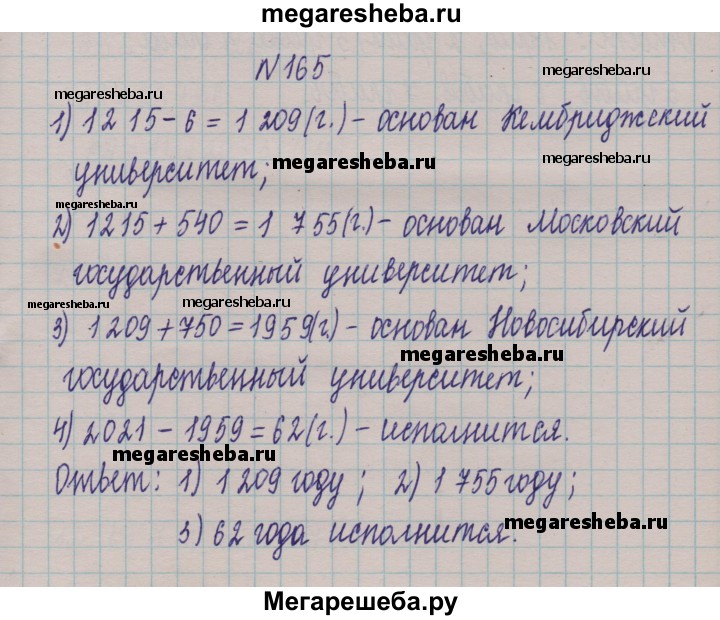 megaresheba.ru
N165
megaresheba.ru
megaresheba.ru
1) 1215-6=1 209(г.)-основан Кембриджский
megaresheba.ru
megaresheba.ru
университет;
megaresheba.ru
2) 1215+540=1 755(г.)-основан Московский
государственный университет;
megaresheba.ru
megaresheba.ru
megaresheba.ru
3) 1209+750=1959(г)-основан Новосибирский
megaresheba.ru
государственный университет;
4) 2021-1959=62(г.)-исполнится.
megaresheba.ru
Ответ: 1) 1 209 году; 2) 1 755 году;
megaresheba.ru
3) 62 года исполнится.
Мегарешеба.ру